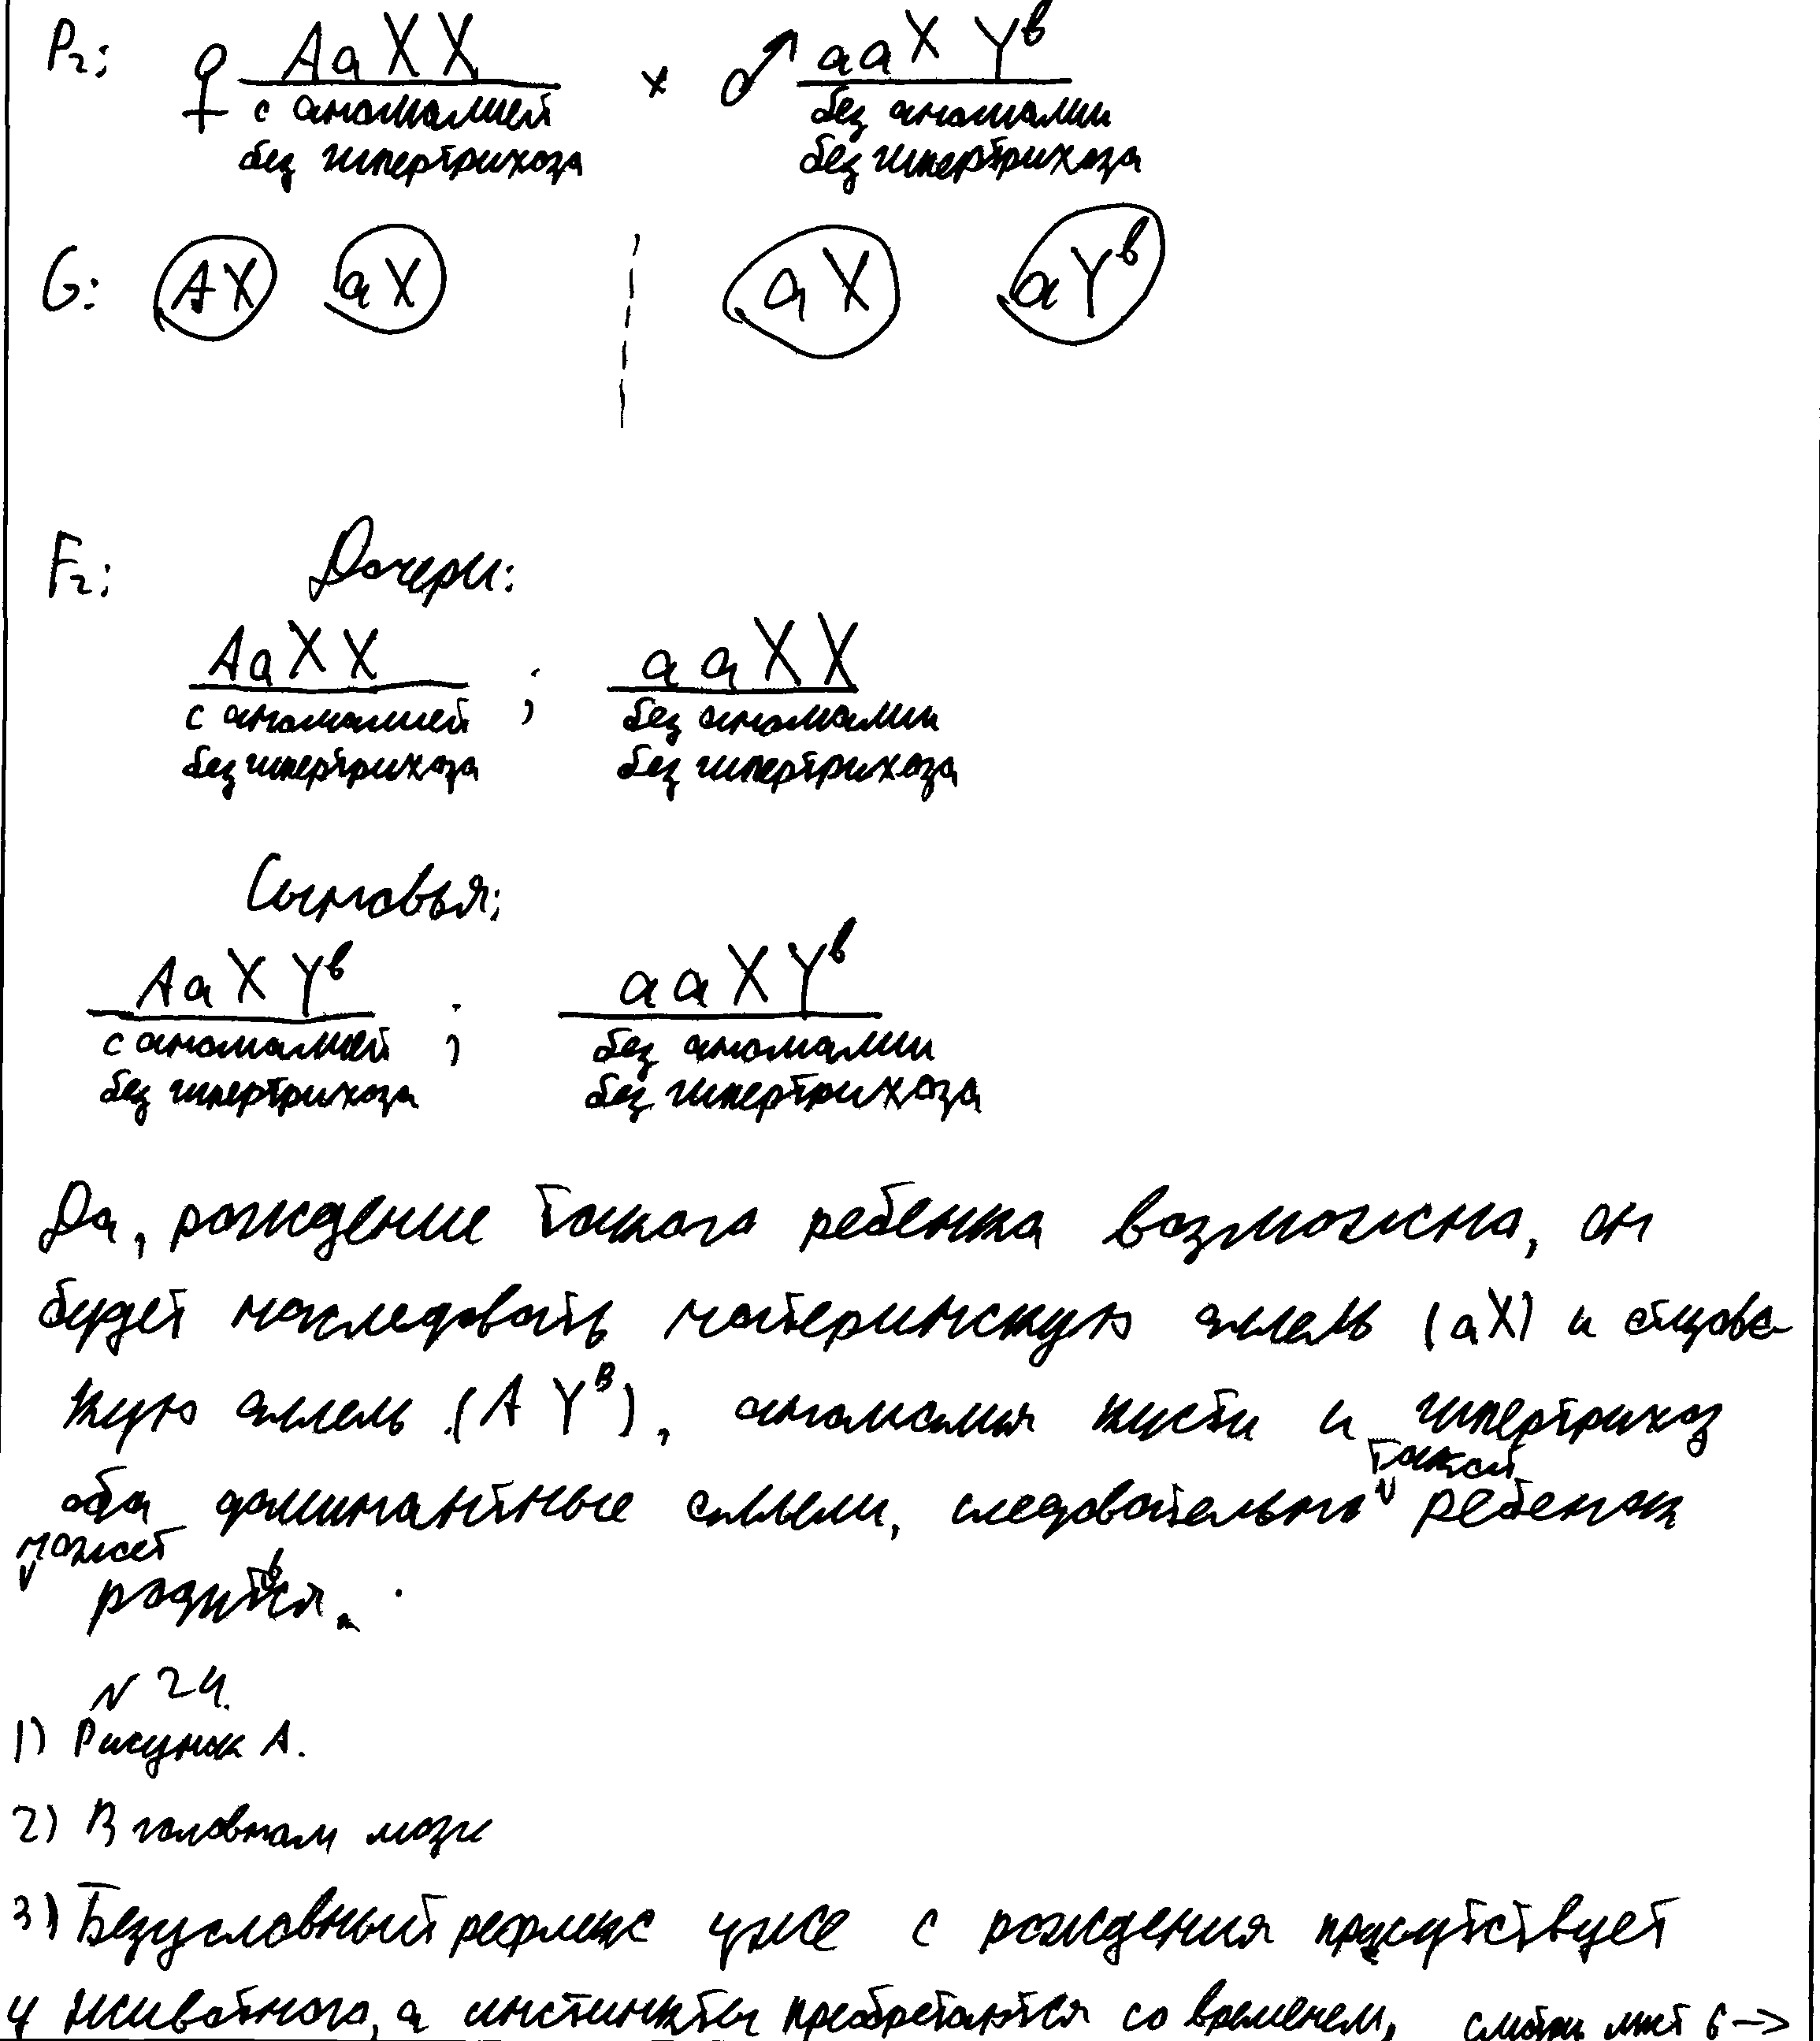 P₂; ♀ AaXX × ♂ aaXYᵇ
с аномалией без аномалии
без гипертрихоза без гипертрихоза
G: AX aX aX aYᵇ
F₂; Дочери:
AaXX ; aaXX
с аномалией без аномалии
без гипертрихоза без гипертрихоза
Сыновья;
AaXYᵇ ; aaXYᵇ
с аномалией без аномалии
без гипертрихоза без гипертрихоза
Да, рождение такого ребенка возможно, он
будет наследовать материнскую аллель (aX) и отцовс-
кую аллель (AYᴮ), аномалия кисти и гипертрихоз
оба доминантные аллели, следовательно такой ребенок
может родиться.
N 24.
1) Рисунок А.
2) В головном мозге
3) Безусловный рефлекс уже с рождения присутствует
у животного, а инстинкты преобретаются со временем, смотри лист 6 →